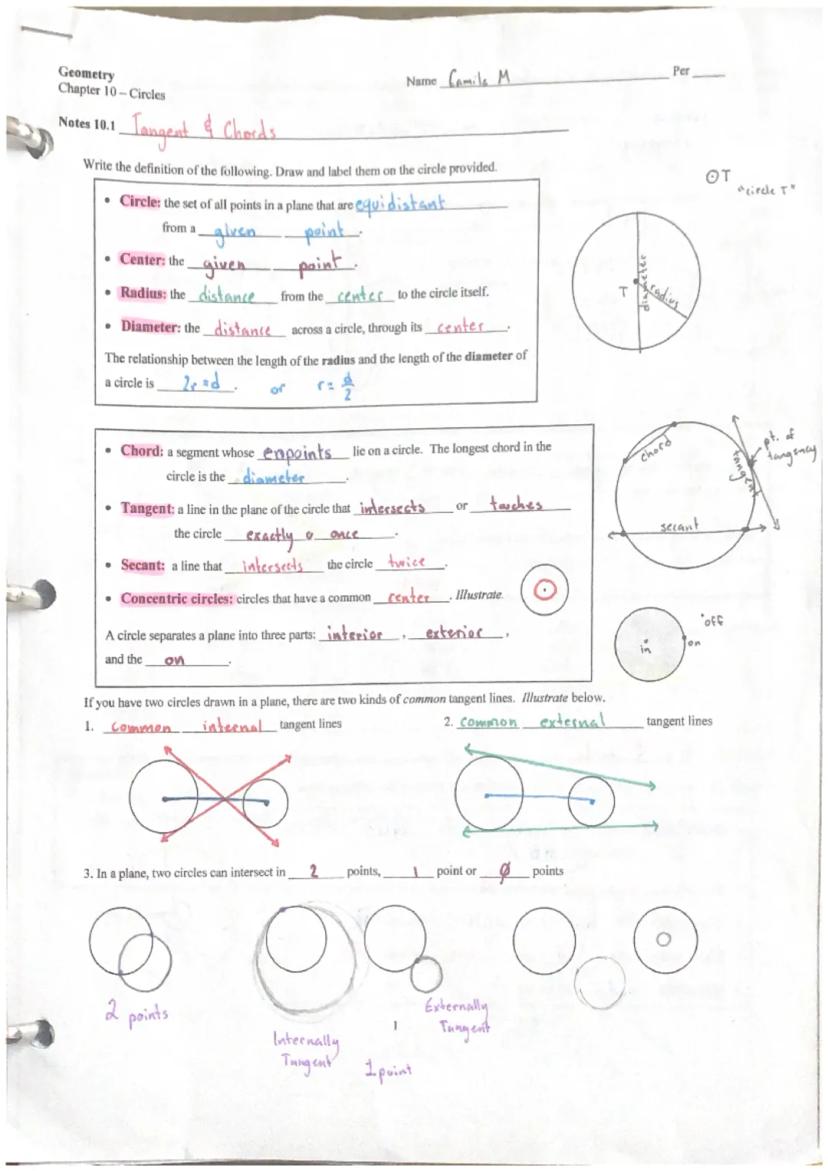 Geometry
Name Camila M Per
Chapter 10 – Circles
Notes 10.1 Tangent & Chords
Write the definition of the following. Draw and label them on the circle provided.
⊙T
"circle T"
• Circle: the set of all points in a plane that are equidistant
from a given point.
• Center: the given point.
• Radius: the distance from the center to the circle itself.
• Diameter: the distance across a circle, through its center.
The relationship between the length of the radius and the length of the diameter of
a circle is 2r=d. or r = d/2
T
diameter
radius
• Chord: a segment whose enpoints lie on a circle. The longest chord in the
circle is the diameter.
• Tangent: a line in the plane of the circle that intersects or touches
the circle exactly once.
• Secant: a line that intersects the circle twice.
• Concentric circles: circles that have a common center. Illustrate.
A circle separates a plane into three parts: interior, exterior,
and the on.
chord
tangent
pt. of
tangency
secant
in
on
off
If you have two circles drawn in a plane, there are two kinds of common tangent lines. Illustrate below.
1. common internal tangent lines
2. common external tangent lines
3. In a plane, two circles can intersect in 2 points, 1 point or Ø points
2 points
Internally
Tangent
1
Externally
Tangent
1 point